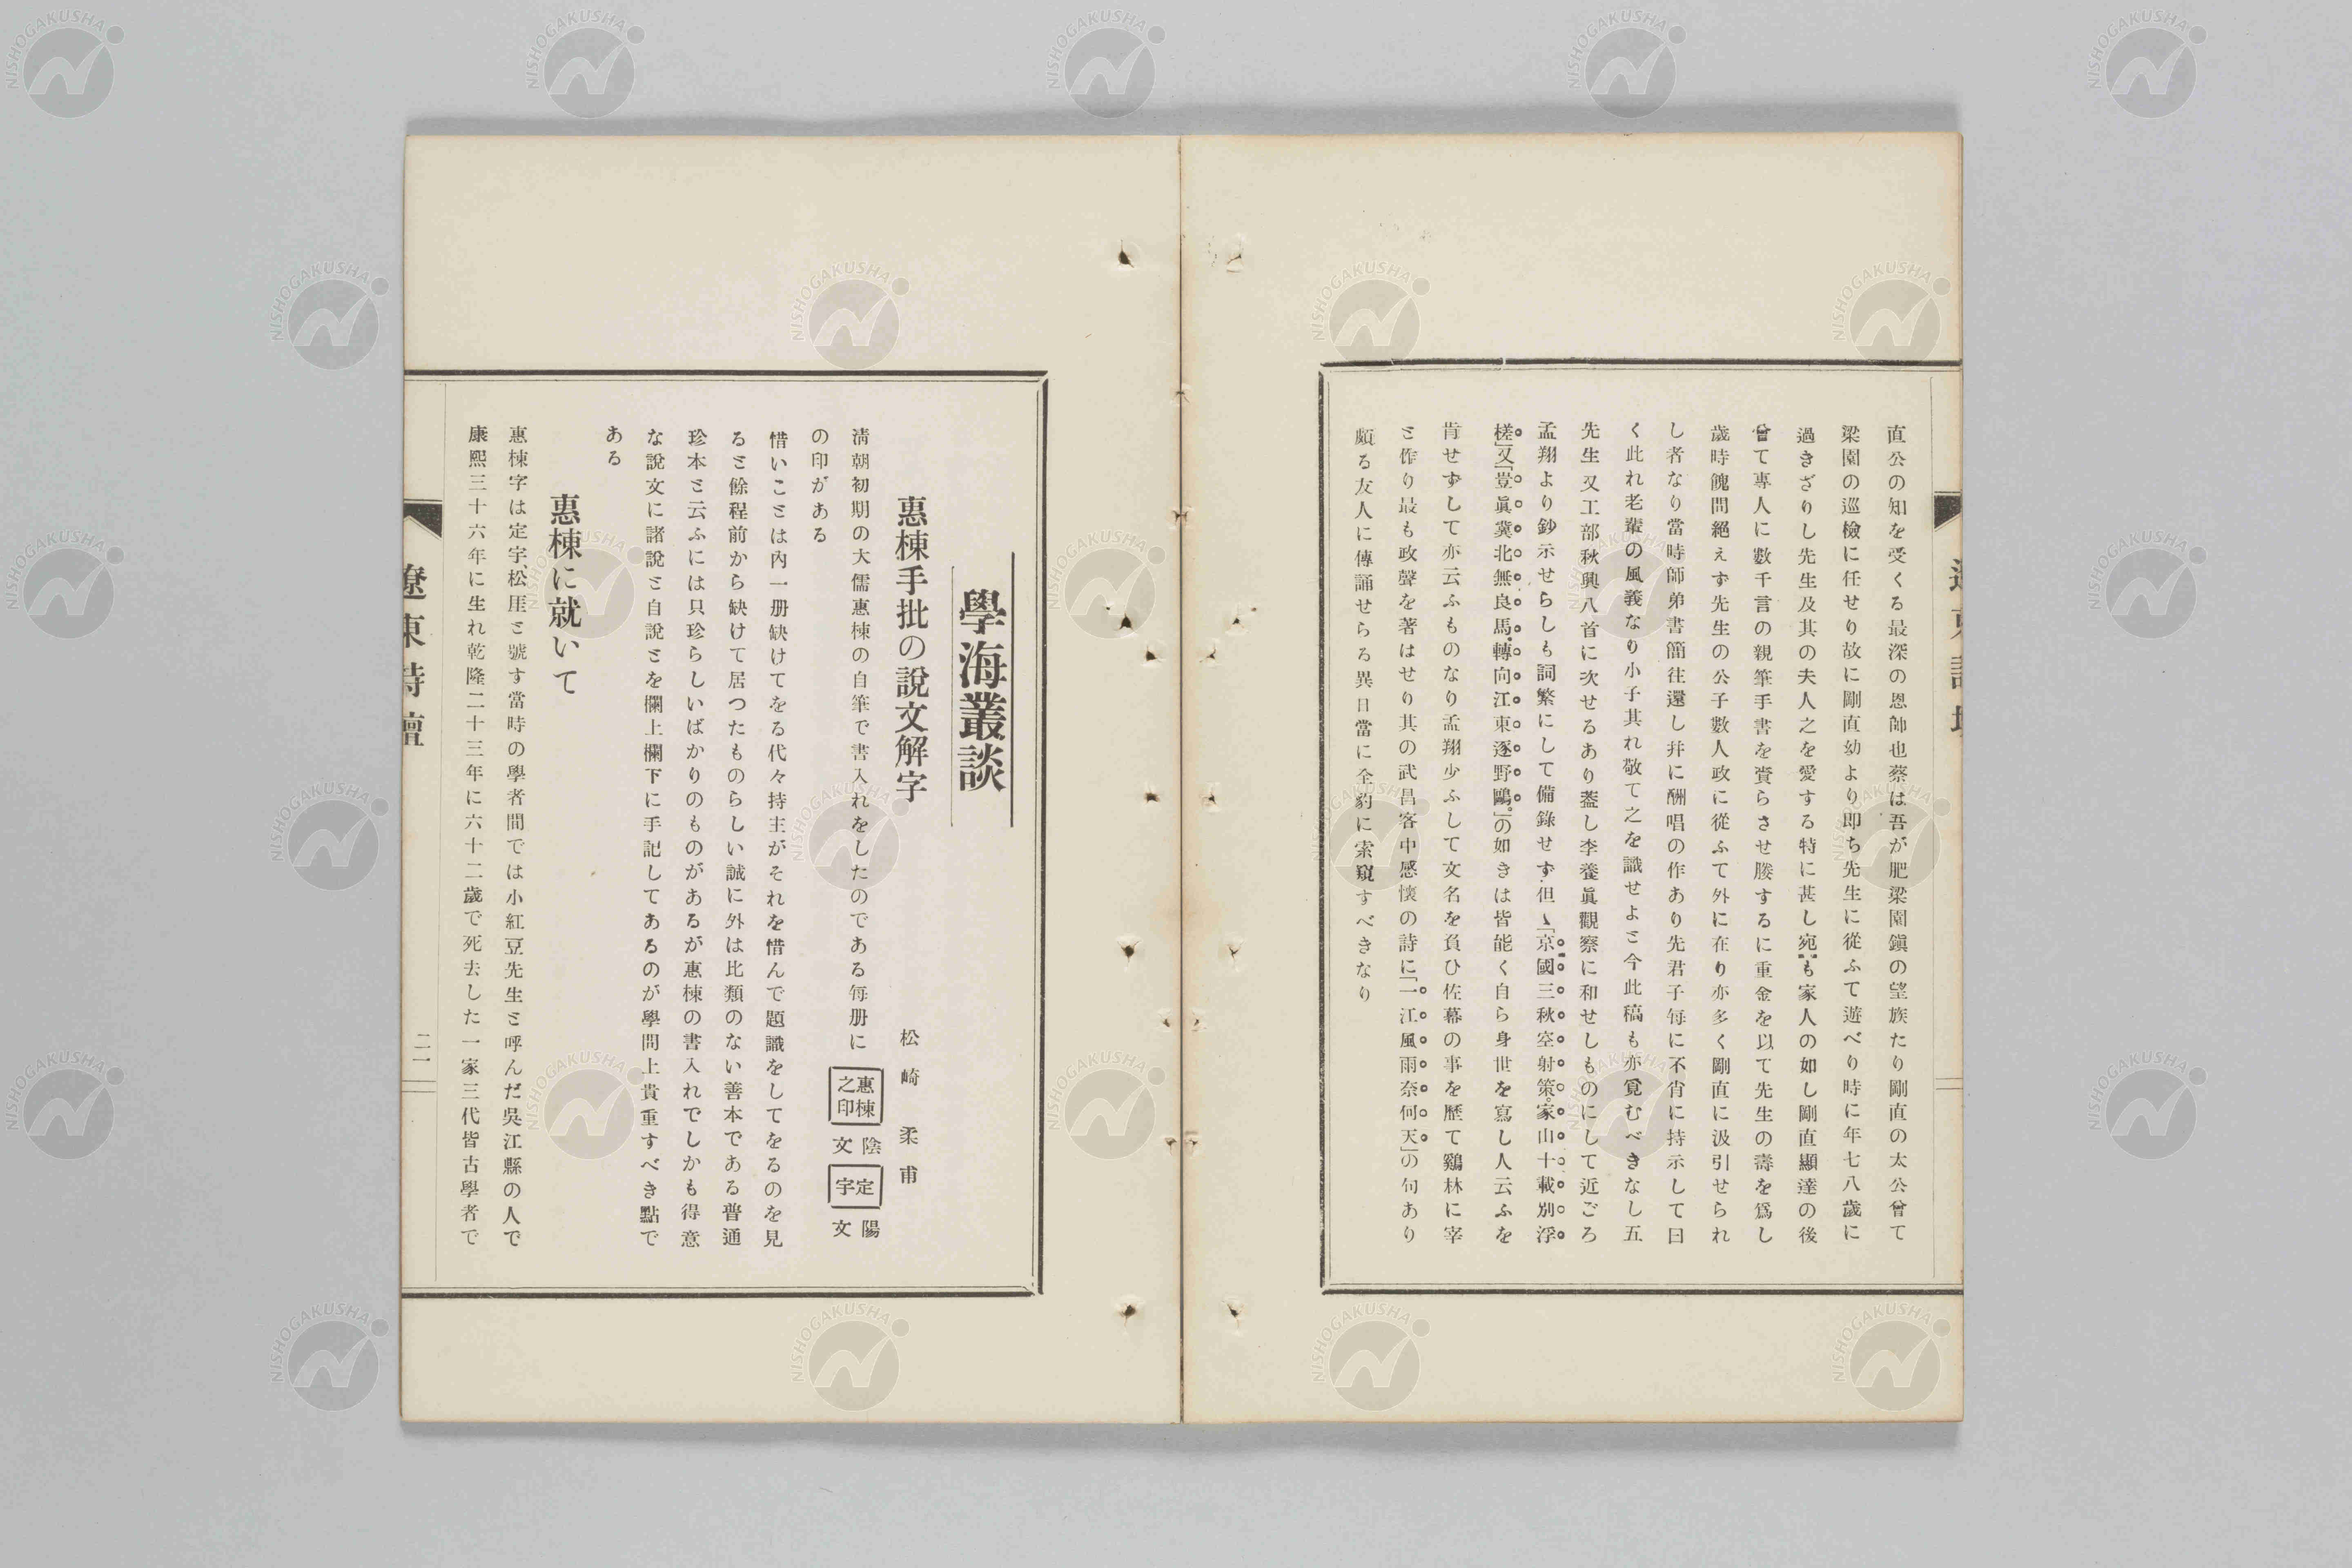 直公の知を受くる最深の恩師也蔡は吾が肥梁園鎭の望族たり剛直の太公曾て
梁園の巡檢に任せり故に剛直幼より即ち先生に從ふて遊べり時に年七八歲に
過きざりし先生及其の夫人之を愛する特に甚し宛も家人の如し剛直顯達の後
曾て專人に數千言の親筆手書を賷らさせ媵するに重金を以て先生の壽を爲し
歲時餽問絕えず先生の公子數人政に從ふて外に在り亦多く剛直に汲引せられ
し者なり當時師弟書簡往還し幷に酬唱の作あり先君子每に不肖に持示して曰
く此れ老輩の風義なり小子其れ敬て之を識せよと今此稿も亦覓むべきなし五
先生又工部秋興八首に次せるあり葢し李養眞觀察に和せしものにして近ごろ
孟翔より鈔示せらしも詞繁にして備錄せず但「京國三秋空射策。家山十載別浮
槎」又「豈眞冀北無良馬。轉向江東逐野鷗。」の如きは皆能く自ら身世を寫し人云ふを
肯せずして亦云ふものなり孟翔少ふして文名を負ひ佐幕の事を歷て鷄林に宰
と作り最も政聲を著はせり其の武昌客中感懷の詩に「一江風雨奈何天」の句あり
頗る友人に傳誦せらる異日當に全豹に索窺すべきなり
學海叢談
惠棟手批の說文解字
松崎柔甫
淸朝初期の大儒惠棟の自筆で書入れをしたのである每册に
惠棟之印
陰文
定宇
陽文
の印がある
惜いことは內一册缺けてをる代々持主がそれを惜んで題識をしてをるのを見
ると餘程前から缺けて居つたものらしい誠に外は比類のない善本である普通
珍本と云ふには只珍らしいばかりのものがあるが惠棟の書入れでしかも得意
な說文に諸說と自說とを欄上欄下に手記してあるのが學問上貴重すべき點で
ある
惠棟に就いて
惠棟字は定宇、松厓と號す當時の學者間では小紅豆先生と呼んだ吳江縣の人で
康熙三十六年に生れ乾隆二十三年に六十二歲で死去した一家三代皆古學者で
遼東詩壇
二一
NISHOGAKUSHA